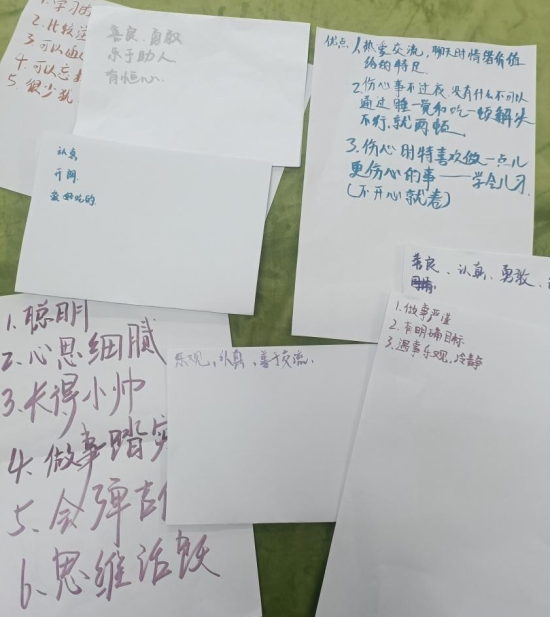 1. 学习
2. 比较
3. 可以
4. 可以忘
5. 很少
善良、勇敢
乐于助人
有恒心
认真
开朗
爱好吃的
优点 1. 热爱交流，聊天时情绪价值
给的特足
2. 伤心事不过夜，没有什么不可以
通过睡一觉和吃一顿解决
不行，就两顿
3. 伤心时特喜欢做一点儿
更伤心的事——学会儿习
(不开心就卷)
善良、认真、勇敢、
1. 做事严谨
2. 有明确目标
3. 遇事乐观，冷静
乐观、认真、善于交流.
1. 聪明
2. 心思细腻
3. 长得小帅
4. 做事踏实
5. 会弹吉
6. 思维活跃